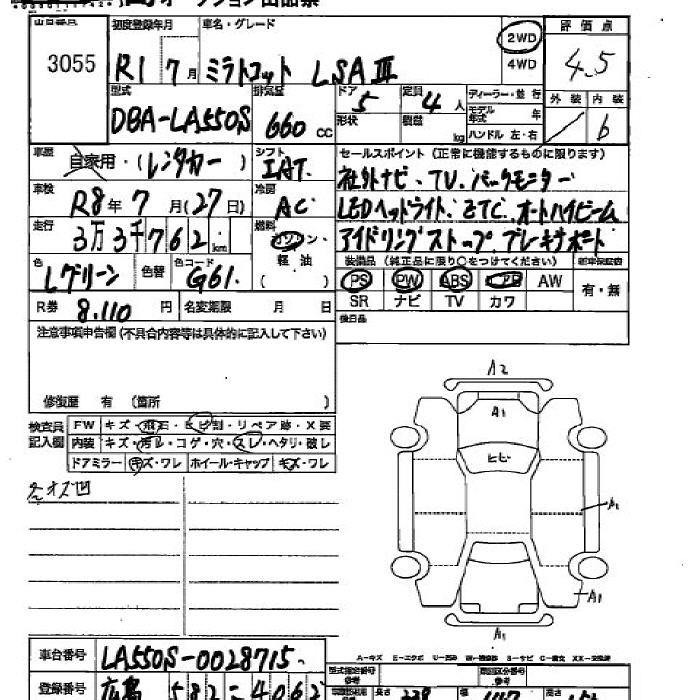 オークション出品票
出品番号 初度登録年月 車名・グレード 評価点
3055 R1 7月 ミラトコット LSA Ⅲ 2WD 4WD 4.5
型式 排気量 ドア 定員 ディーラー・並行 外装 内装
DBA-LA550S 660cc 5 4人 モデル年式 年 6
形状 積載 kg ハンドル 左・右
車歴 自家用・(レンタカー) シフト IAT セールスポイント (正常に機能するものに限ります)
車検 R8年7月(27日) 冷房 AC 社外ナビ、TV、バックモニター
LEDヘッドライト、ETC、オートハイビーム
走行 3万3千762km 燃料 ガソリン・軽油( ) アイドリングストップ、ブレーキサポート
色 Lグリーン 色替 色コード G61 装備品 (純正品に限り○をつけてください) 新車保証書
PS PW ABS AW 有・無
SR ナビ TV カワ
R券 8,110円 名変期限 月 日 後日品
注意事項申告欄 (不具合内容等は具体的に記入して下さい)
修復歴 有 (箇所 )
検査員記入欄 FW キズ・飛石・ヒビ割・リペア跡・X要
内装 キズ・汚レ・コゲ・穴・スレ・ヘタリ・破レ
ドアミラー キズ・ワレ ホイール・キャップ キズ・ワレ
A2
A1
ヒビ
A1
A1
A1
A-キズ E-エクボ U-凹み
車台番号 LA550S-0028715
登録番号 広島 582 4062
型式指定番号 類別区分番号
長さ 339 幅 147 高さ